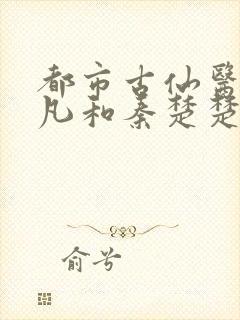 都市古仙醫
凡和秦楚楚
俞兮